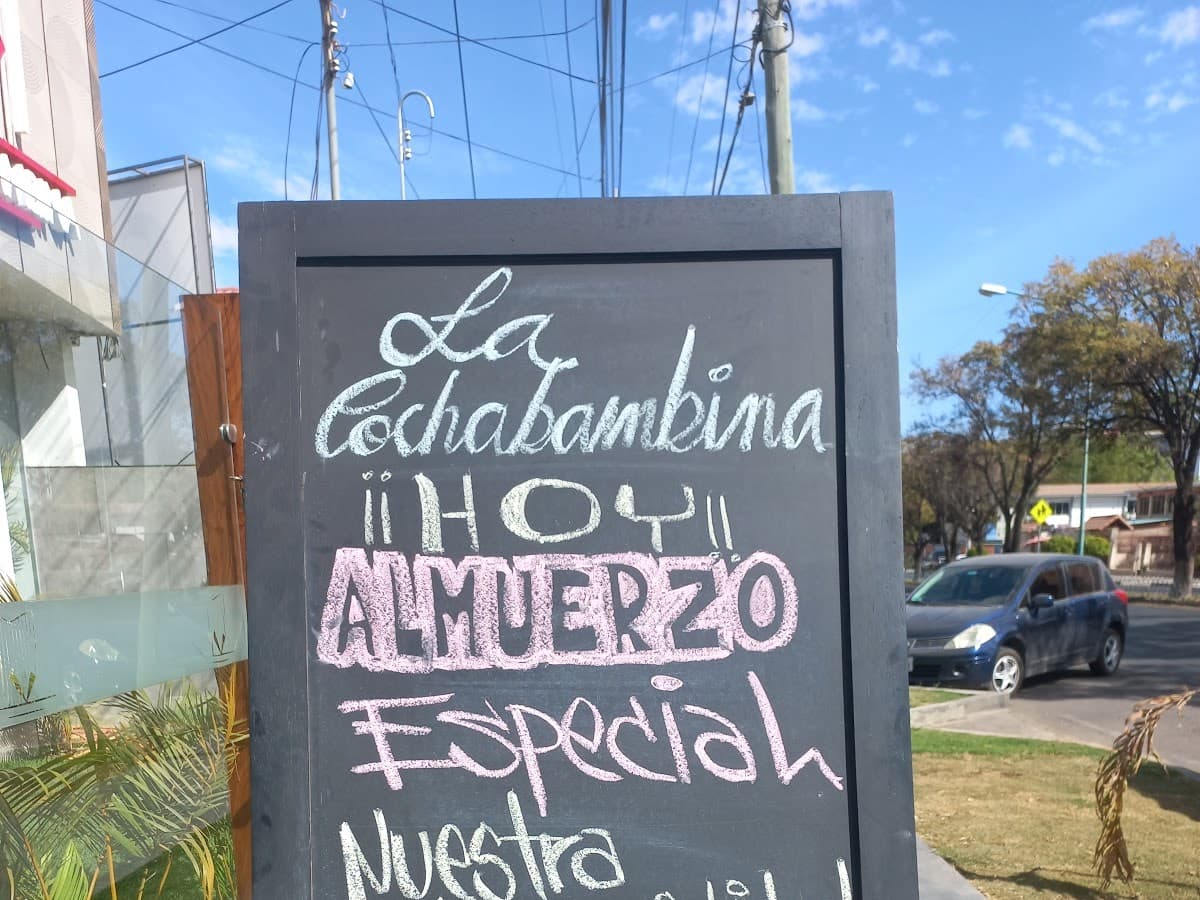 La
Cochabambina
¡¡HOY!!
ALMUERZO
Especial
Nuestra